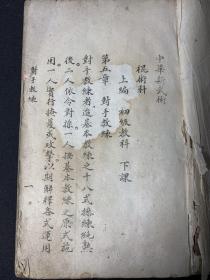 中華新武術
棍術科
上編　初級教科　下課
第五章　對手教練
對手教練者進基本教練之十八式操練純熟
後二人依令對操一人按基本教練之原式施
用一人實行掩護或攻擊以期解釋各式運用
對手教練
一